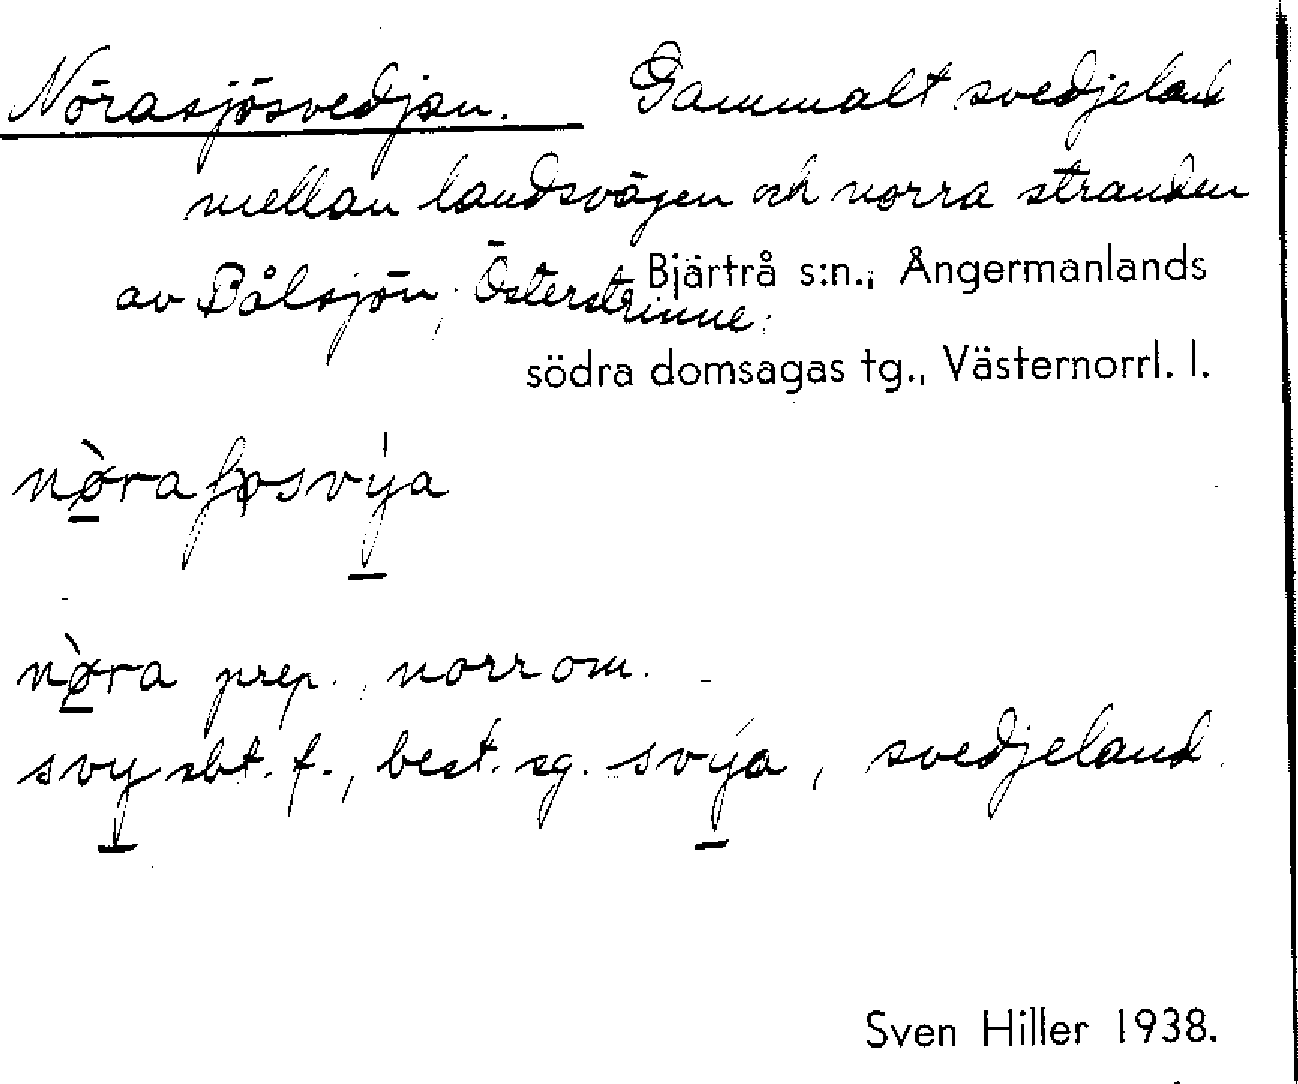 Nörasjösvedjan. Gammalt svedjeland
mellan landsvägen och norra stranden
av Bålsjön, Österstrinne.
Bjärtrå s:n., Ångermanlands
södra domsagas tg., Västernorrl. l.
nø̀raʃøsvýa
nø̀ra prep., norr om.
svy sbt. f., best. sg. svýa, svedjeland.
Sven Hiller 1938.